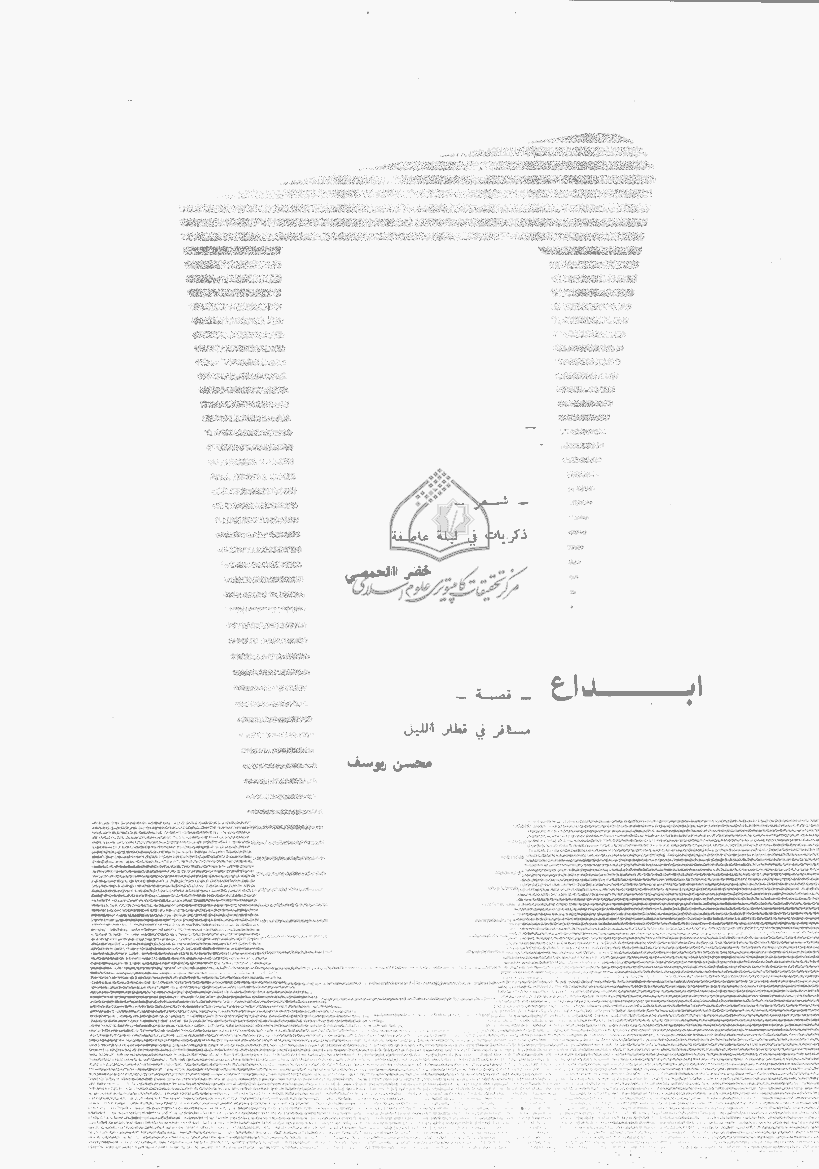 - شعر -
ذكريات في ليلة عاصفة
خضر الحمصي
مرکز تحقیقات کامپیوتری علوم اسلامی
ابـــداع
- قصة -
مسافر في قطار الليل
محسن يوسف